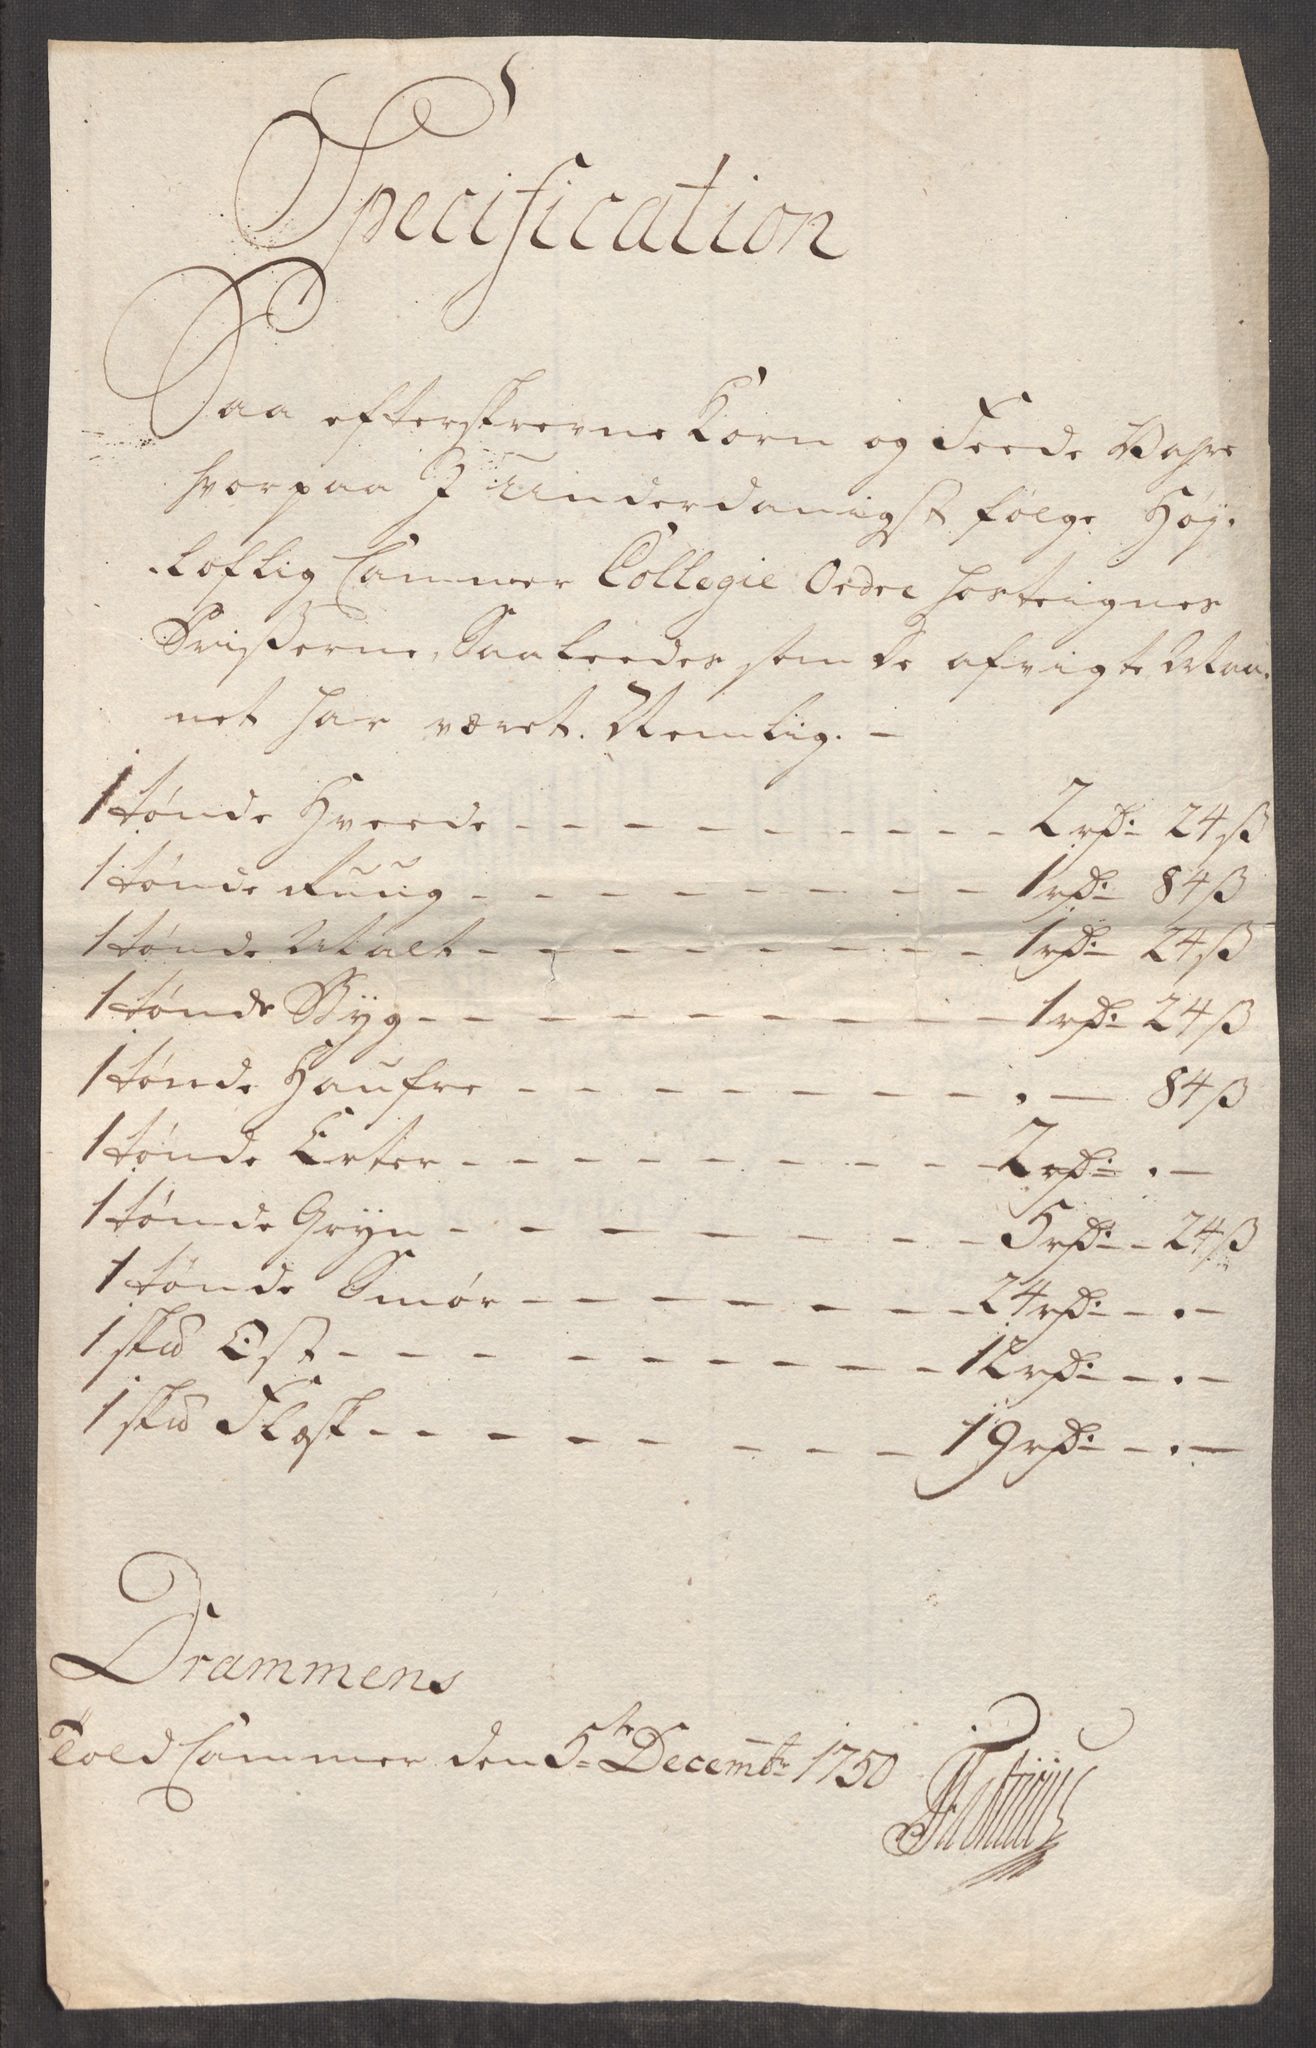 Specification
Paa efterskrevne Korn og Feede Vahre
hvorpaa I Underdanigst følge Høy-
loflig Cammer Collegie Ordre hosteignes
Prisserne, Saaleedes som de afvigte Maa-
net har været. Nemlig. –
1 tønde Hveede - - - - - - - - - 2 rd: 24 ß
1 tønde Ruug - - - - - - - - - 1 rd: 84 ß
1 tønde Malt - - - - - - - - - 1 rd: 24 ß
1 tønde Byg - - - - - - - - - 1 rd: 24 ß
1 tønde Haufre - - - - - - - - - . — 84 ß
1 tønde Erter - - - - - - - - - 2 rd: . —
1 tønde Gryn - - - - - - - - - 5 rd: - 24 ß
1 tønde Smør - - - - - - - - - 24 rd: - . —
1 skd Ost - - - - - - - - - 12 rd: - . —
1 skd Flesk - - - - - - - - - 19 rd: - . —
Drammens
Told Cammer den 5te Decembr 1750